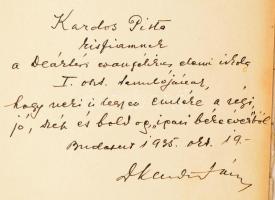 Kardos Pista
kisfiamnak
a Deáktéri evangélikus elemi iskola
I. oszt. tanulójának,
hogy neki is legyen emléke a régi,
jó, szép és boldog, igazi békeévekből.
Budapest 1935. okt. 19.-